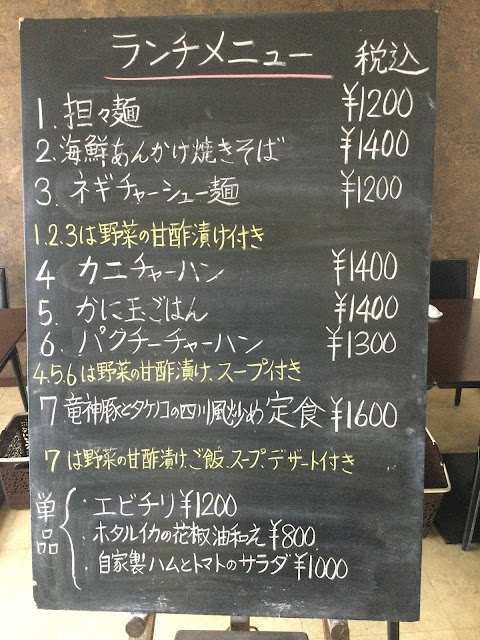 ランチメニュー 税込
1. 担々麺 ¥1200
2. 海鮮あんかけ焼きそば ¥1400
3. ネギチャーシュー麺 ¥1200
1.2.3は野菜の甘酢漬け付き
4 カニチャーハン ¥1400
5. かに玉ごはん ¥1400
6. パクチーチャーハン ¥1300
4.5.6は野菜の甘酢漬け、スープ付き
7 竜神豚とタケノコの四川風炒め定食 ¥1600
7は野菜の甘酢漬け、ご飯、スープ、デザート付き
単品
・エビチリ ¥1200
・ホタルイカの花椒油和え ¥800
・自家製ハムとトマトのサラダ ¥1000